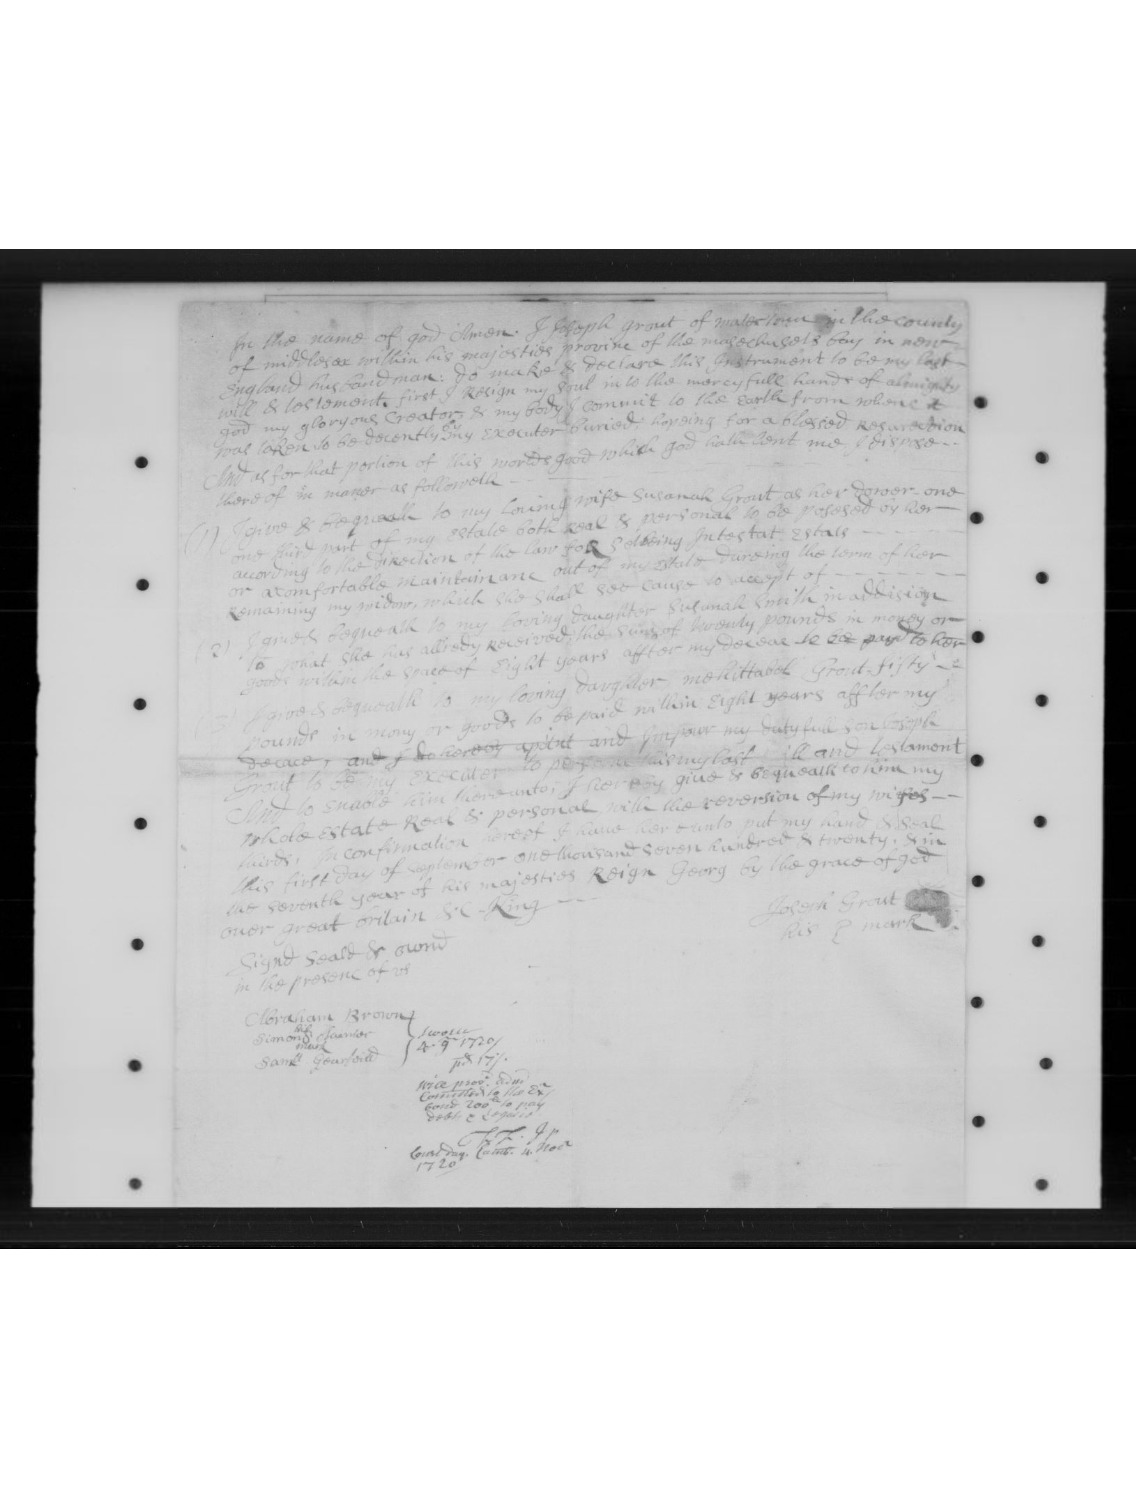 In the name of god Amen. I Joseph grout of watertown in the county
of middlesex within his majesties provine of the masechusets bay in new
England husbandman. do make & declare this Instrument to be my last
will & testement first I Resign my soul in to the mercyfull hands of almighty
god my gloryous Creator, & my body I commit to the Earth from whenc it
was taken to be decently by my Executer buried, hopeing for a blessed Resarection
And as for that portion of this worlds good which god hath lent me, I dispose
there of in maner as followeth
(1) I give & bequeath to my loving wife Susanah Grout as her dower one
one third part of my estate both Real & personal to be posesed by her
according to the direction of the law for setleing Intestat Estats
or a comfortable maintainanc out of my estate dureing the term of her
Remaining my widow, which she shall see cause to accept of
(2) I give & bequeath to my loving daughter Susanah Smith in addision
to what she has allredy Received, the sum of twenty pounds in money or
goods within the space of Eight years affter my deceas to be payd to her
(3) I give & bequeath to my loving daughter mehittabel Grout fifty
pounds in mony or goods to be paid within Eight years affter my
decace, and I do hereby apoint and Impour my dutyfull son Joseph
Grout to be my Executer to perform this my last will and testament
And to enable him thereunto, I hereby give & bequeath to him my
whole Estate Real & personal with the reversion of my wifes
thirds, In confirmation hereof I have hereunto put my hand & seal
this first day of september one thousand seven hundred & twenty, & in
the seventh year of his majesties Reign Georg by the grace of god
over great britain &c King
Joseph Grout
his mark
Signd seald & ownd
in the presenc of us
Abraham Brown
his
Simond
mark
Sam^ll
Sworn
4. 9 1720/
pd. 17/.
Will prov^d. Adm
Comitted to the Ex^r
bond 200 to pay
debt & Legacies
Camb. 4. Nov^r
1720